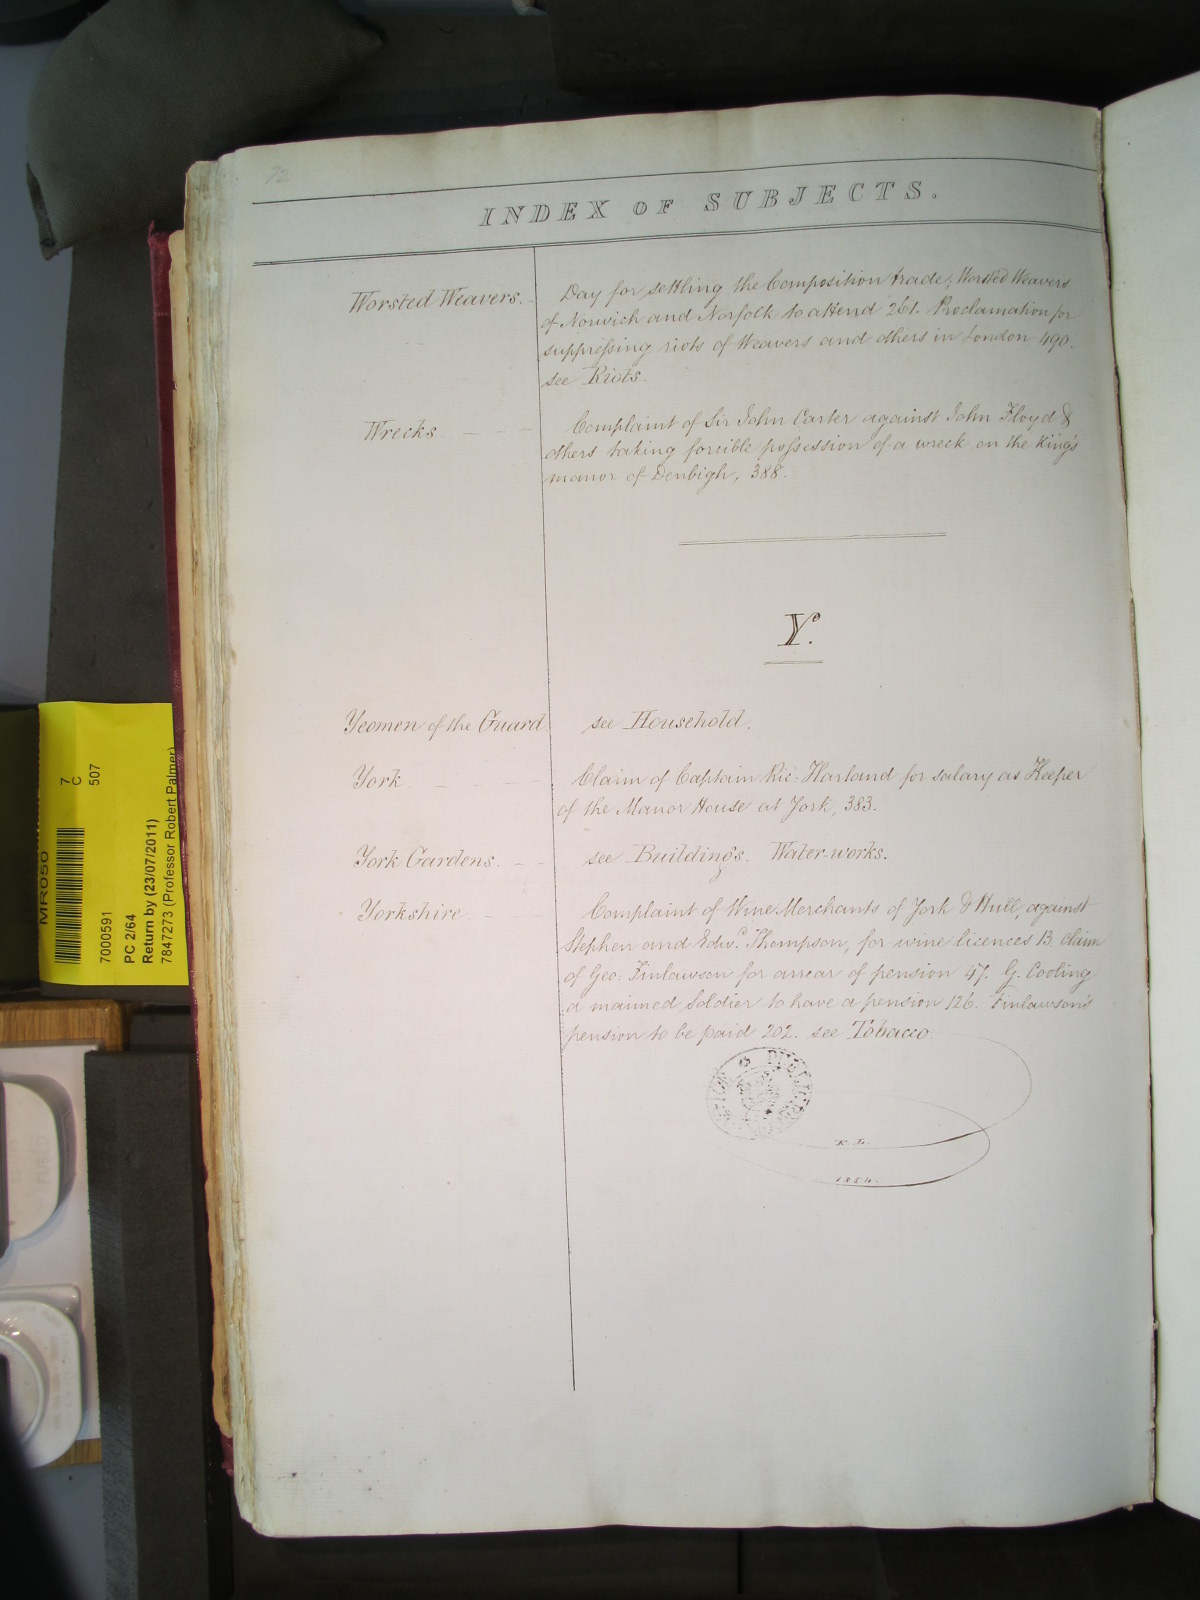 72
INDEX OF SUBJECTS.
Worsted Weavers. Day for settling the Composition trade; Worsted Weavers
of Norwich and Norfolk to attend 261. Proclamation for
suppressing riots of Weavers and others in London 490.
see Riots.
Wrecks Complaint of Sir John Carter against John Floyd &
others taking forcible possession of a wreck on the King's
manor of Denbigh, 388.
Y.
Yeomen of the Guard see Household.
York Claim of Captain Ric: Harland for salary as Keeper
of the Manor House at York, 383.
York Gardens. see Buildings. Water-works.
Yorkshire Complaint of Wine Merchants of York & Hull, against
Stephen and Edwd. Thompson, for wine licences 13. claim
of Geo: Finlawson for arrear of pension 47. G. Cooling
a maimed Soldier to have a pension 126. Finlawson's
pension to be paid 202. see Tobacco
1854.
MR050
7
C
507
7000591
PC 2/64
Return by (23/07/2011)
7847273 (Professor Robert Palmer)